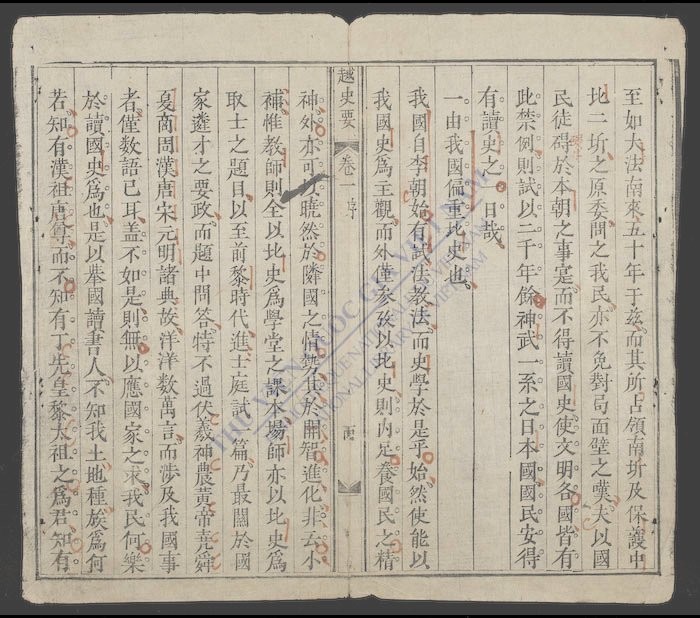 至如大法南來五十年于茲而其所占領南圻及保護中
北二圻之原委問之我民亦不免對局面壁之嘆夫以國
民徒碍於本朝之事寔而不得讀國史使文明各國皆有
此禁例則試以二千年餘神武一系之日本國國民安得
有讀史之一日哉
一由我國偏重北史也
我國自李朝始有試法教法而史學於是乎始然使能以
我國史爲主觀而外僅參攷以北史則内足養國民之精
越史要 卷一 序
神外亦可以曉然於隣國之情勢其於開智進化非云小
補惟教師則全以北史爲學堂之課本場師亦以北史爲
取士之題目以至前黎時代進士庭試一篇乃最關於國
家遴才之要政而題中問答特不過伏羲神農黃帝堯舜
夏商周漢唐宋元明諸典故洋洋数萬言而涉及我國事
者僅数語已耳盖不如是則無以應國家之求我民何樂
於讀國史爲也是以舉國讀書人不知我土地種族爲何
若知有漢祖唐尊而不知有丁先皇黎太祖之爲君知有
THƯ VIỆN QUỐC GIA VIỆT NAM
NATIONAL LIBRARY OF VIETNAM